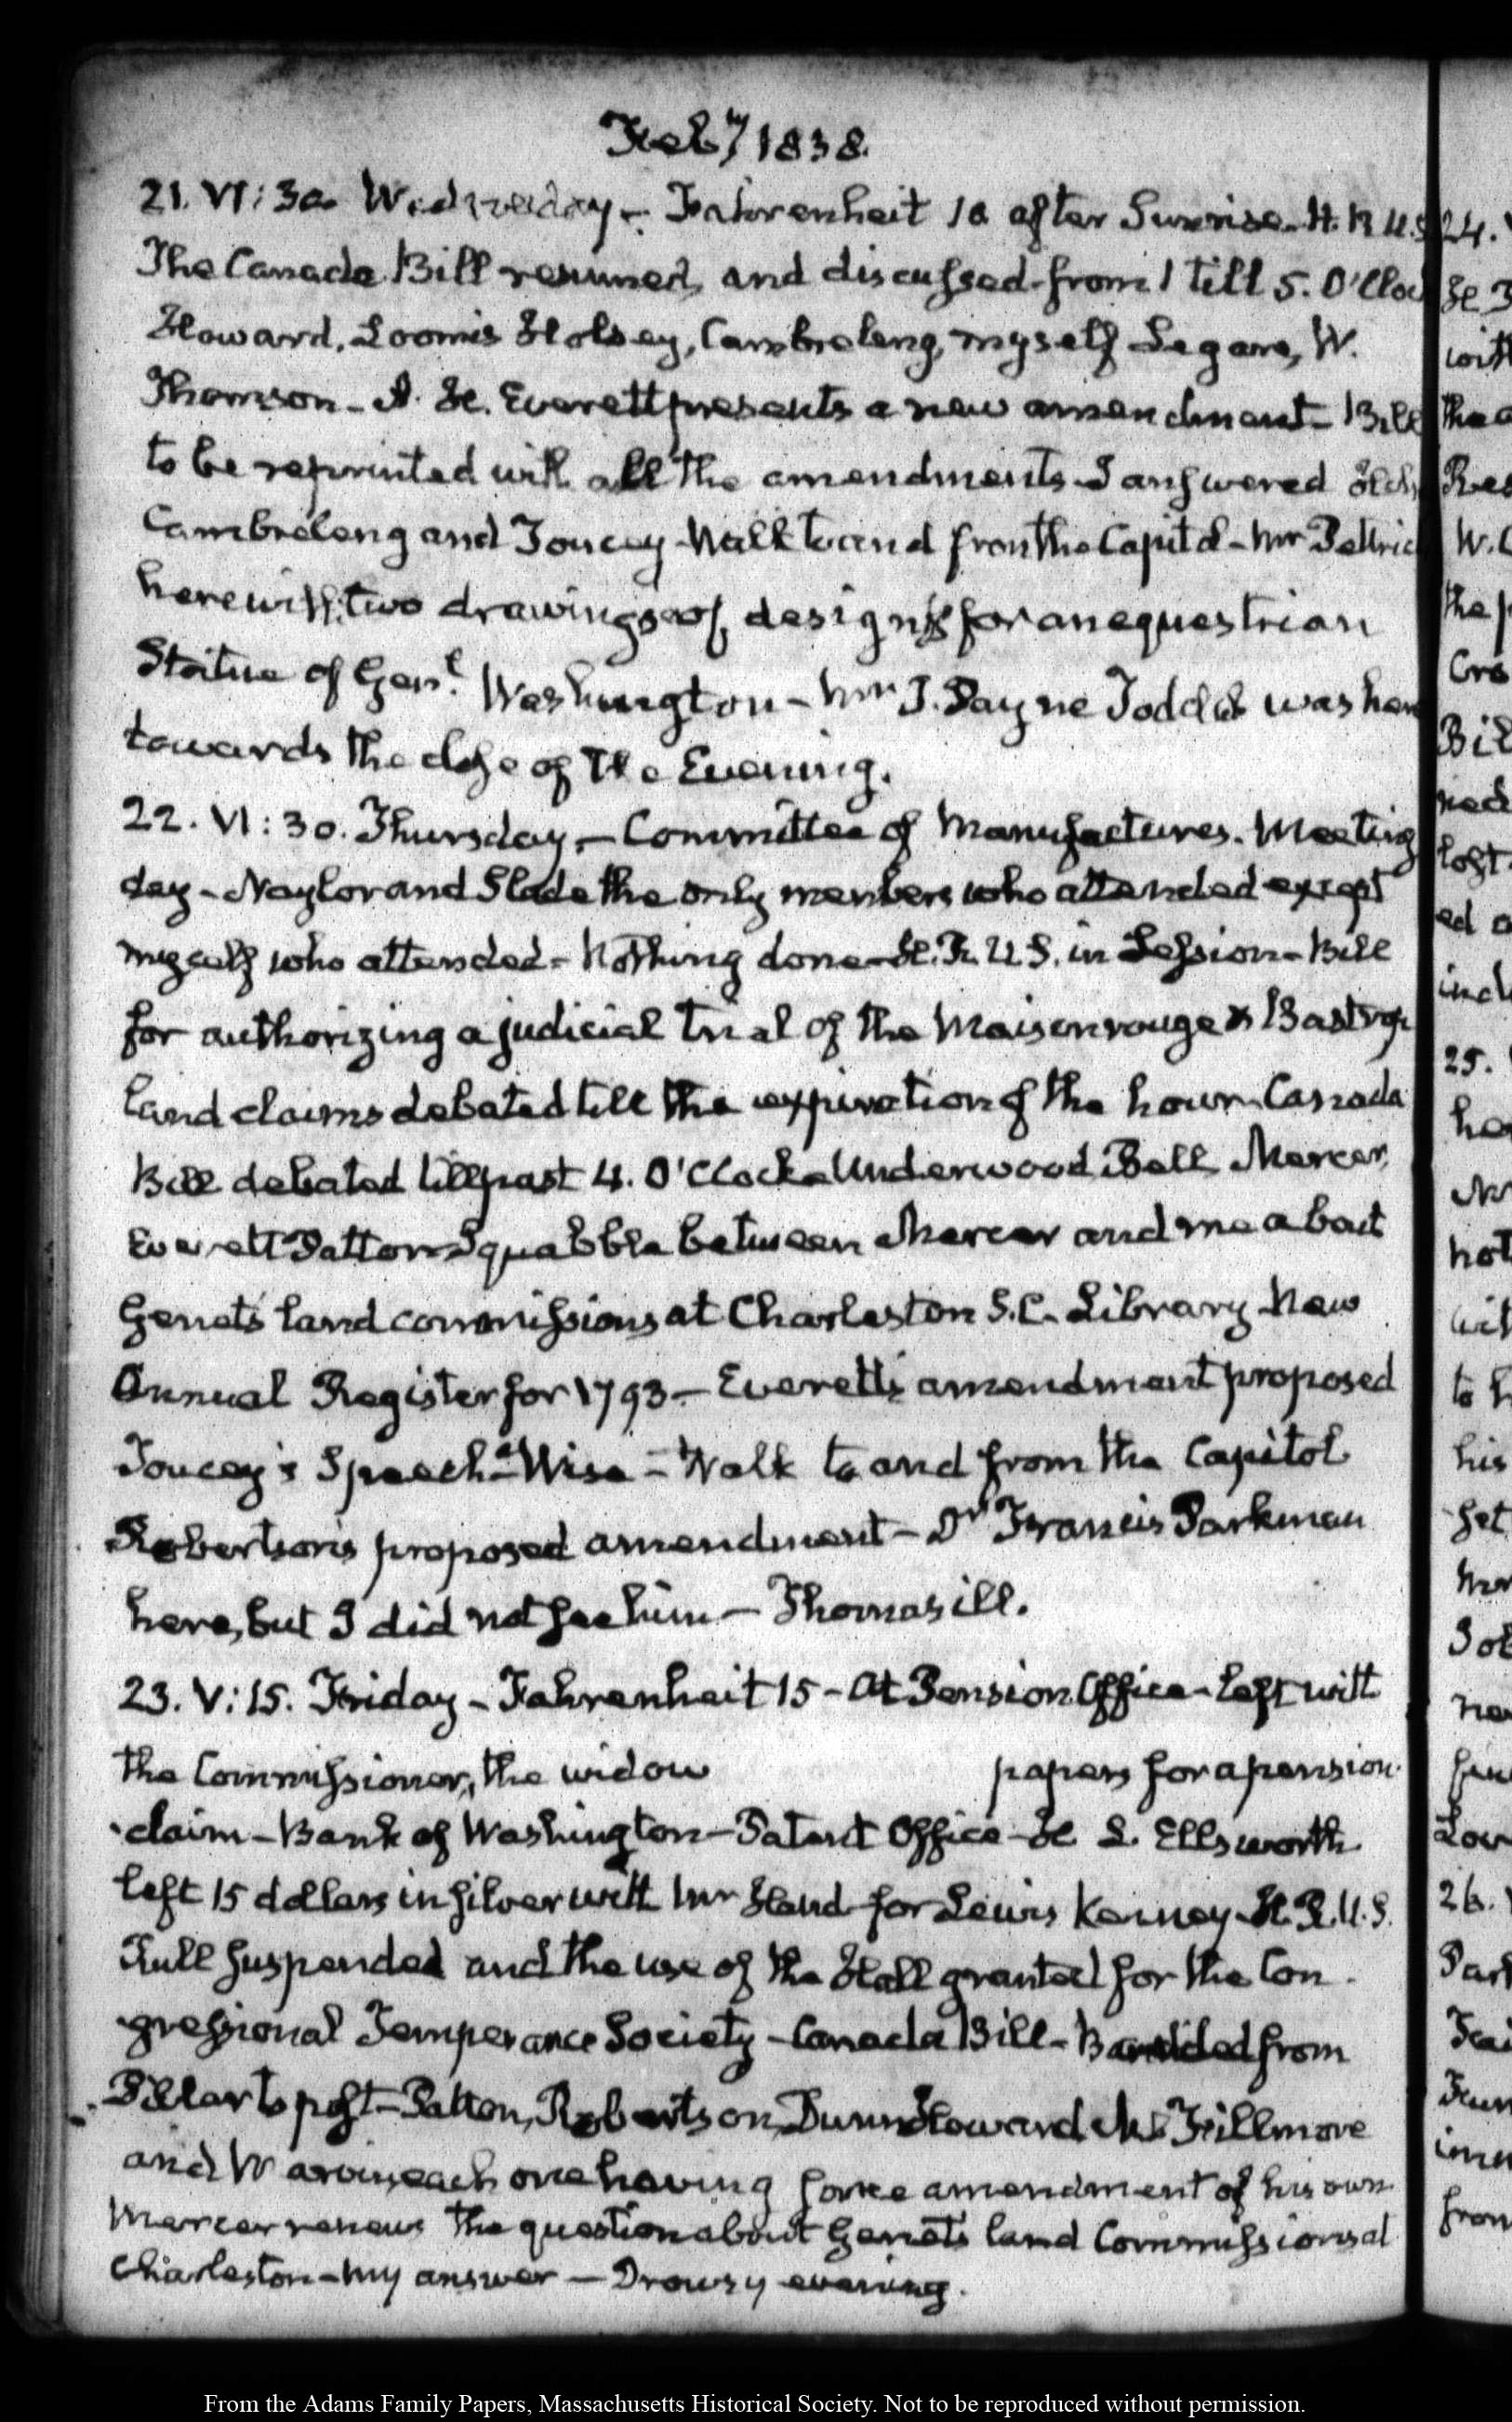 Feby 1838.
21. VI: 30. Wednesday.- Fahrenheit 10 after Sunrise. H. R U.S
The Canada Bill resumed, and discussed from 1 till 5. O'Cloc
Howard, Loomis Holsey, Cambreleng, myself Legare, W.
Thomson- A. H. Everett presents a new amendment- Bill
to be reprinted with all the amendments- I answered
Cambreleng and Toucey- Walk to and from the Capitol- Mr Pettric
here with two drawings of designs for an equestrian
Statue of Genl. Washington- Mr J. Payne Todd was here
towards the close of the Evening.
22. VI: 30. Thursday.- Committee of Manufactures. Meeting
day- Naylor and Slade the only members who attended except
myself who attended- Nothing done- H. R. U S. in Session- Bill
for authorizing a judicial trial of the Maisonrouge & Bastrop
land claims debated till the expiration of the hour. Canada
Bill debated till past 4. O'Clock- Underwood Bell Mercer,
Everett Patton- Squabble between Mercer and me about
Genet's land commissions at Charleston S.C. Library- New
Annual Register for 1793- Everett's amendment proposed
Toucey's Speech- Wise- Walk to and from the Capitol
Robertson's proposed amendment- Dr Francis Parkman
here, but I did not see him- Thomas ill.
23. V: 15. Friday- Fahrenheit 15- At Pension Office- left with
the Commissioner, the widow papers for a pension
claim- Bank of Washington- Patent Office- H L. Ellsworth
left 15 dollars in silver with Mr Hand for Lewis Kerney- H. R. U. S.
Rule suspended and the use of the Hall granted for the Con
gressional Temperance Society- Canada Bill- Bandied from
Pillar to post- Patton, Robertson, Dunn Howard Fillmore
and each one having some amendment of his own
Mercer renews the question about Genet's land Commissions at
Charleston- my answer- Drowsy evening.
24.
25.
26.
From the Adams Family Papers, Massachusetts Historical Society. Not to be reproduced without permission.